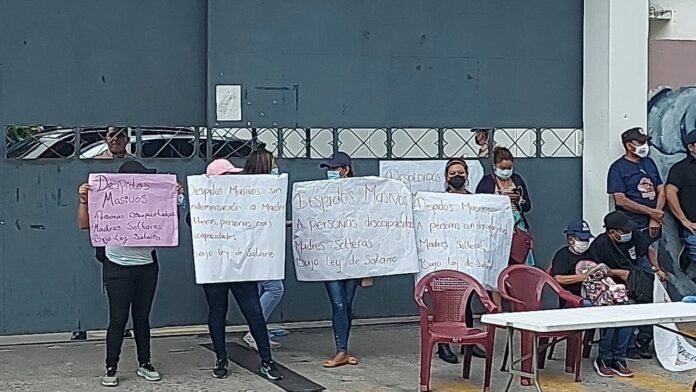 Despidos
Masivos
Personas discapacitadas
Madres Solteras
Bajo Ley Salario
Despidos Masivos Sin
indemnización a Madres
solteras, personas con
discapacidades
Bajo ley de Salario
Despidos Masivos
A personas discapacitadas
Madres Solteras
Bajo Ley de Salario
Despidos
Despidos Masivos
A personas con discapacidad
Madres Solteras
Bajo Ley de Salario